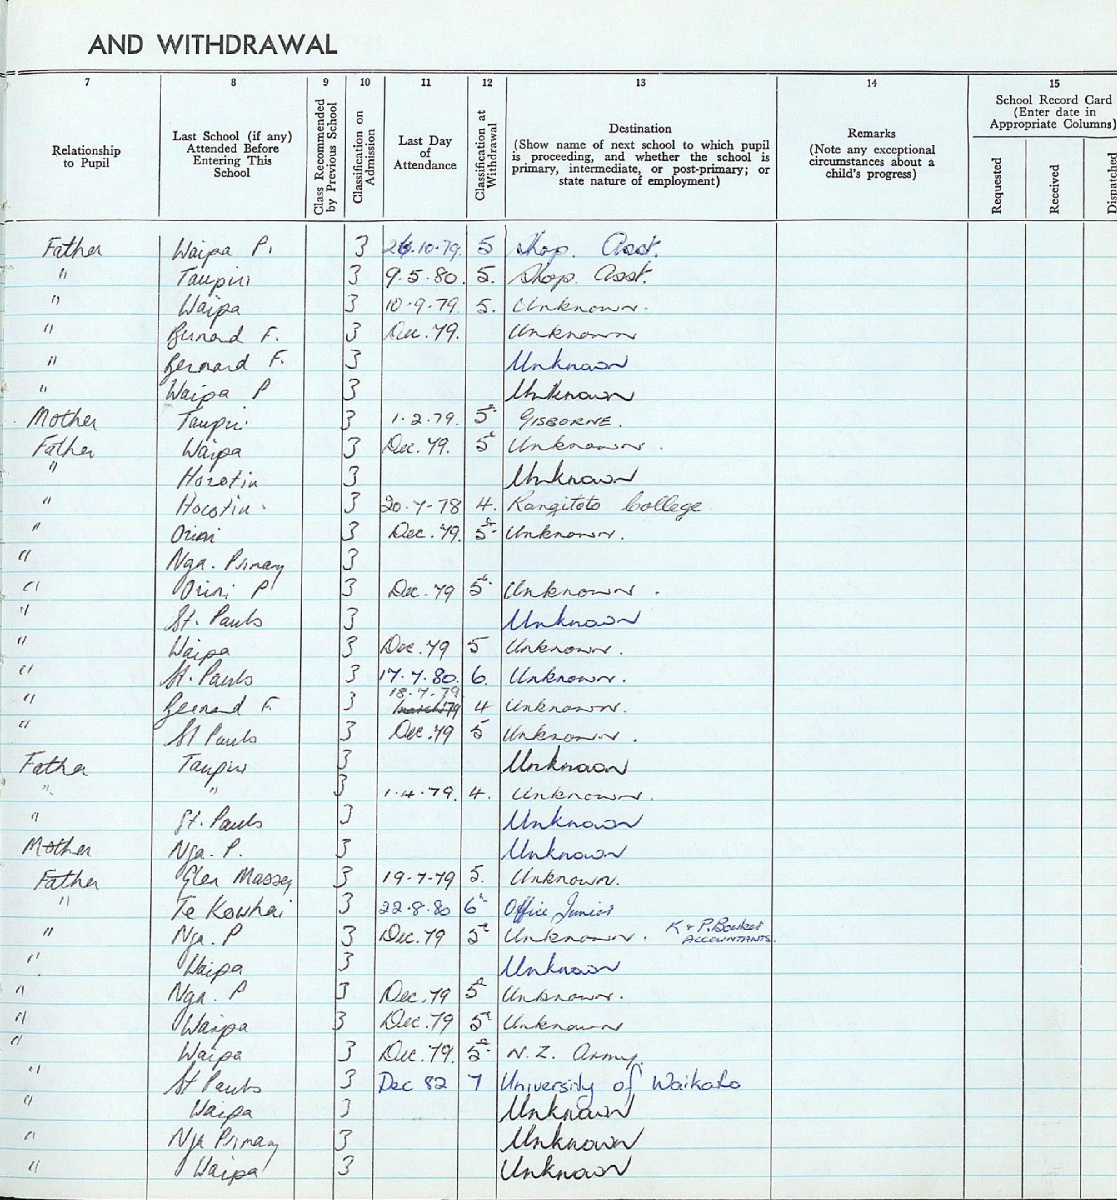 AND WITHDRAWAL
7 8 9 10 11 12 13 14 15
Relationship to Pupil
Last School (if any) Attended Before Entering This School
Class Recommended by Previous School
Classification on Admission
Last Day of Attendance
Classification at Withdrawal
Destination
(Show name of next school to which pupil is proceeding, and whether the school is primary, intermediate, or post-primary; or state nature of employment)
Remarks
(Note any exceptional circumstances about a child's progress)
School Record Card (Enter date in Appropriate Columns)
Requested Received Dispatched
Father Waipa P. 3 26.10.79. 5 Shop. Asst.
" Taupiri 3 9.5.80. 5. Shop. Asst.
" Waipa 3 10.9.79. 5. Unknown.
" Bernard F. 3 Dec.79. Unknown
" Bernard F. 3 Unknown
" Waipa P 3 Unknown
Mother Taupiri 3 1.2.79. 5 GISBORNE.
Father Waipa 3 Dec.79. 5 Unknown.
" Horotiu 3 Unknown
" Horotiu. 3 20-7-78 4. Rangitoto College
" Orini 3 Dec.79. 5 Unknown.
" Nga. Primary 3
" Orini P 3 Dec.79 5 Unknown.
" St. Pauls 3 Unknown
" Waipa 3 Dec.79 5 Unknown.
" St. Pauls 3 17.7.80. 6. Unknown.
" Bernard F. 3 18.7.79 4 Unknown.
" St Pauls 3 Dec.79 5 Unknown.
Father Taupiri 3 Unknown
" " 3 1.4.79. 4. Unknown.
" St. Pauls 3 Unknown
Mother Nga. P. 3 Unknown
Father Glen Massey 3 19-7-79 5. Unknown.
" Te Kowhai 3 22.8.80 6 Office Junior
" Nga. P 3 Dec.79 5 Unknown. K & P. Bowker ACCOUNTANTS.
" Waipa 3 Unknown
" Nga. P 3 Dec.79 5 Unknown.
" Waipa 3 Dec.79 5 Unknown
" Waipa 3 Dec.79. 5 N.Z. Army.
" St Pauls 3 Dec 82 7 University of Waikato
" Waipa 3 Unknown
" Nga Primary 3 Unknown
" Waipa 3 Unknown